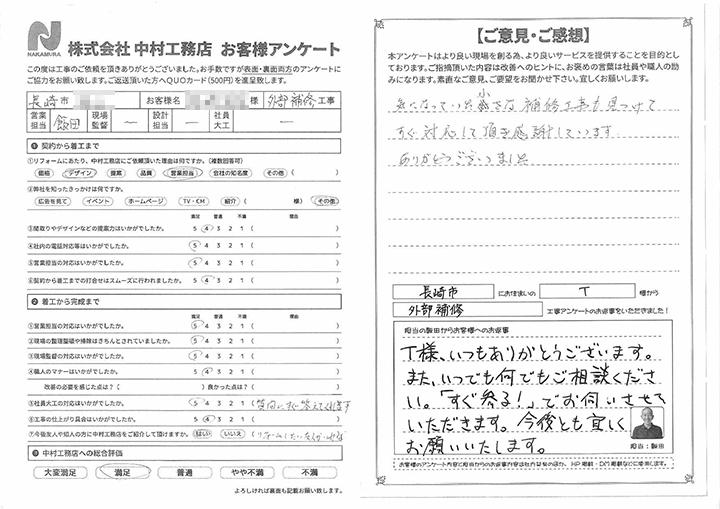 NAKAMURA
株式会社 中村工務店 お客様アンケート
この度は工事のご依頼を頂きありがとうございました。お手数ですが表面・裏面両方のアンケートに
ご協力をお願い致します。ご返送頂いた方へQUOカード(500円)を進呈致します。
長崎市 お客様名 様 外部補修工事
営業担当 飯田 現場監督 ー 設計担当 ー 社員大工 ー
❶ 契約から着工まで
①リフォームにあたり、中村工務店にご依頼頂いた理由は何ですか。(複数回答可)
価格 デザイン 提案 品質 営業担当 会社の知名度 その他( )
②弊社を知ったきっかけは何ですか。
広告を見て イベント ホームページ TV・CM 紹介( 様) その他
満足 普通 不満 理由
③間取りやデザインなどの提案力はいかがでしたか。 5 4 3 2 1 ( )
④社内の電話対応等はいかがでしたか。 5 4 3 2 1 ( )
⑤営業担当の対応はいかがでしたか。 5 4 3 2 1 ( )
⑥契約から着工までの打合せはスムーズに行われましたか。 5 4 3 2 1 ( )
❷ 着工から完成まで
満足 普通 不満 理由
①営業担当の対応はいかがでしたか。 5 4 3 2 1 ( )
②現場の整理整頓や掃除はきちんとされていましたか。 5 4 3 2 1 ( )
③現場監督の対応はいかがでしたか。 5 4 3 2 1 ( )
④職人のマナーはいかがでしたか。 5 4 3 2 1 ( )
改善の必要を感じた点は?( ) 良かった点は?( )
⑤社員大工の対応はいかがでしたか。 5 4 3 2 1 ( 質問にすぐ答えてくれます
⑥工事の仕上がり具合はいかがでしたか。 5 4 3 2 1 ( )
⑦今後友人や知人の方に中村工務店をご紹介して頂けますか。 はい いいえ (
❸ 中村工務店への総合評価
大変満足 満足 普通 やや不満 不満
よろしければ裏面も記載お願い致します。
【ご意見・ご感想】
本アンケートはより良い現場を創る為、より良いサービスを提供することを目的と
しております。ご指摘頂いた内容は改善へのヒントに、お褒めの言葉は社員や職人の励
みになります。素直なご意見、ご要望をお聞かせ下さい。宜しくお願いします。
気になっていた小さな補修工事も見つけて
すぐ対応して頂き感謝しています
ありがとうございました
長崎市 にお住まいの T 様から
外部補修 工事アンケートのお返事をいただきました!
担当の飯田からお客様へのお返事
T様、いつもありがとうございます。
また、いつでも何でもご相談くださ
い。「すぐ参る!」でお伺いさせて
いただきます。今後とも宜しく
お願いいたします。
担当:飯田